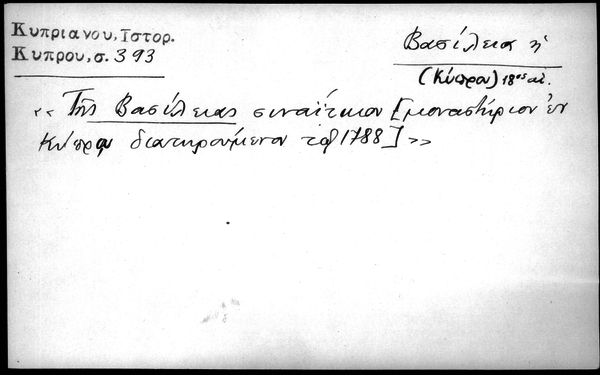 Κυπριανου, Ιστορ.
Κυπρου, σ. 393
Βασίλεια ἡ
(Κύπρου) 18ος αἰ.
«Τῆς Βασίλειας σιναΐτικον [μοναστήριον ἐν
Κύπρῳ διατηρούμενον τῷ 1788]»